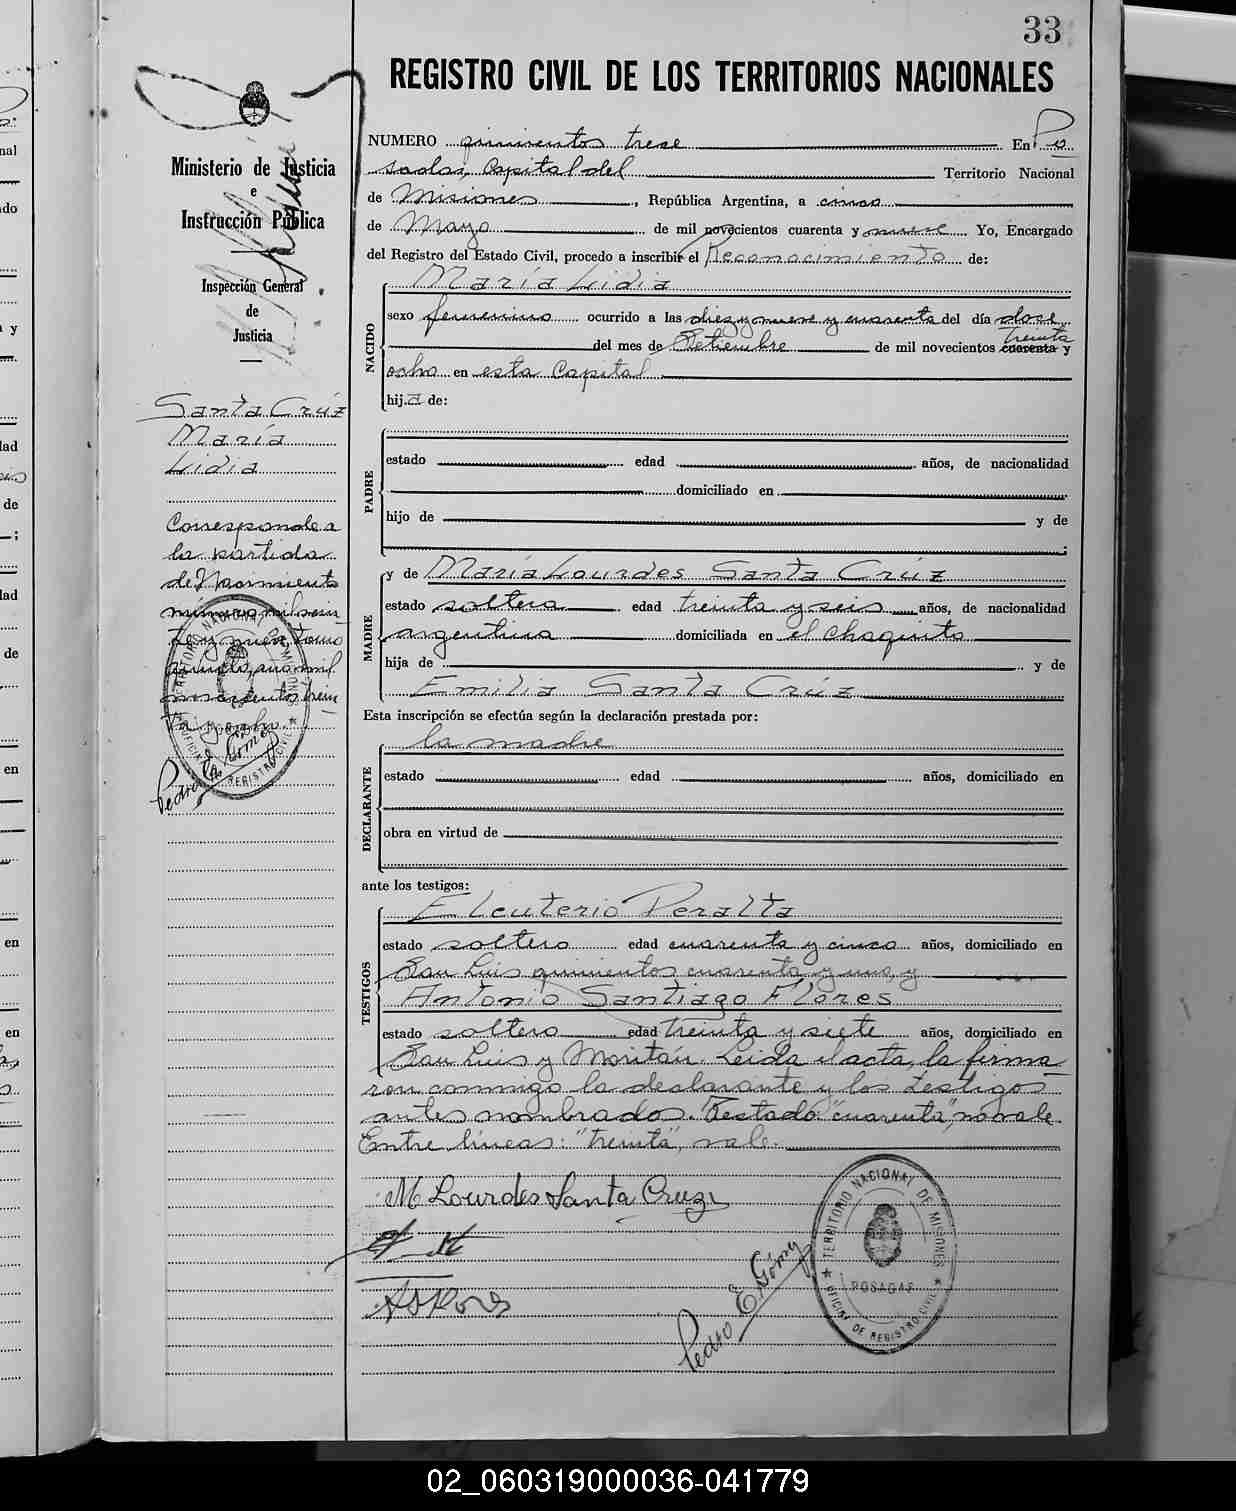 33
REGISTRO CIVIL DE LOS TERRITORIOS NACIONALES
Ministerio de Justicia
e
Instrucción Pública
Inspección General
de
Justicia
Santa Crúz
María
Lidia
Corresponde a
la partida
de Nacimiento
número mil
tomo
año mil
novecientos trein
ta y ocho
Pedro E. Gómez
TERRITORIO NACIONAL DE MISIONES
OFICINA DE REGISTRO CIVIL
NUMERO quinientos trece En Po
sadas, Capital del Territorio Nacional
de Misiones, República Argentina, a cinco
de Mayo de mil novecientos cuarenta y nueve Yo, Encargado
del Registro del Estado Civil, procedo a inscribir el Reconocimiento de:
María Lidia
NACIDO
sexo femenino ocurrido a las diez y nueve y cuarenta del día doce
treinta
del mes de Setiembre de mil novecientos cuarenta y
ocho en esta Capital
hija de:
PADRE
estado edad años, de nacionalidad
domiciliado en
hijo de y de
;
MADRE
y de María Lourdes Santa Crúz
estado soltera edad treinta y seis años, de nacionalidad
argentina domiciliada en el Chaquito
hija de y de
Emilia Santa Crúz
Esta inscripción se efectúa según la declaración prestada por:
la madre
DECLARANTE
estado edad años, domiciliado en
obra en virtud de
ante los testigos:
TESTIGOS
Eleuterio Peralta
estado soltero edad cuarenta y cinco años, domiciliado en
San Luis quinientos cuarenta y uno, y
Antonio Santiago Flores
estado soltero edad treinta y siete años, domiciliado en
San Luis y Moritán. Leida el acta, la firma
ron conmigo la declarante y los testigos
antes nombrados. Testado: "cuarenta", no vale.
Entre líneas: "treinta", vale.
M Lourdes Santa Cruz
Pedro E. Gómez
TERRITORIO NACIONAL DE MISIONES
POSADAS
OFICINA DE REGISTRO CIVIL
02_060319000036-041779